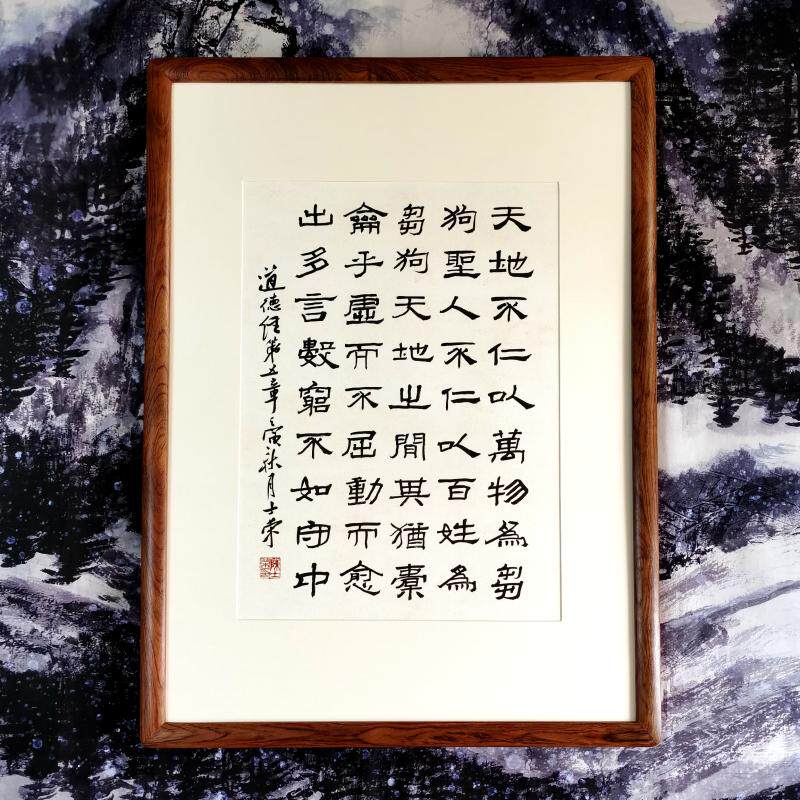 天地不仁以萬物為芻
狗聖人不仁以百姓為
芻狗天地之間其猶橐
龠乎虛而不屈動而愈
出多言數窮不如守中
道德经第五章壬寅秋月士荣